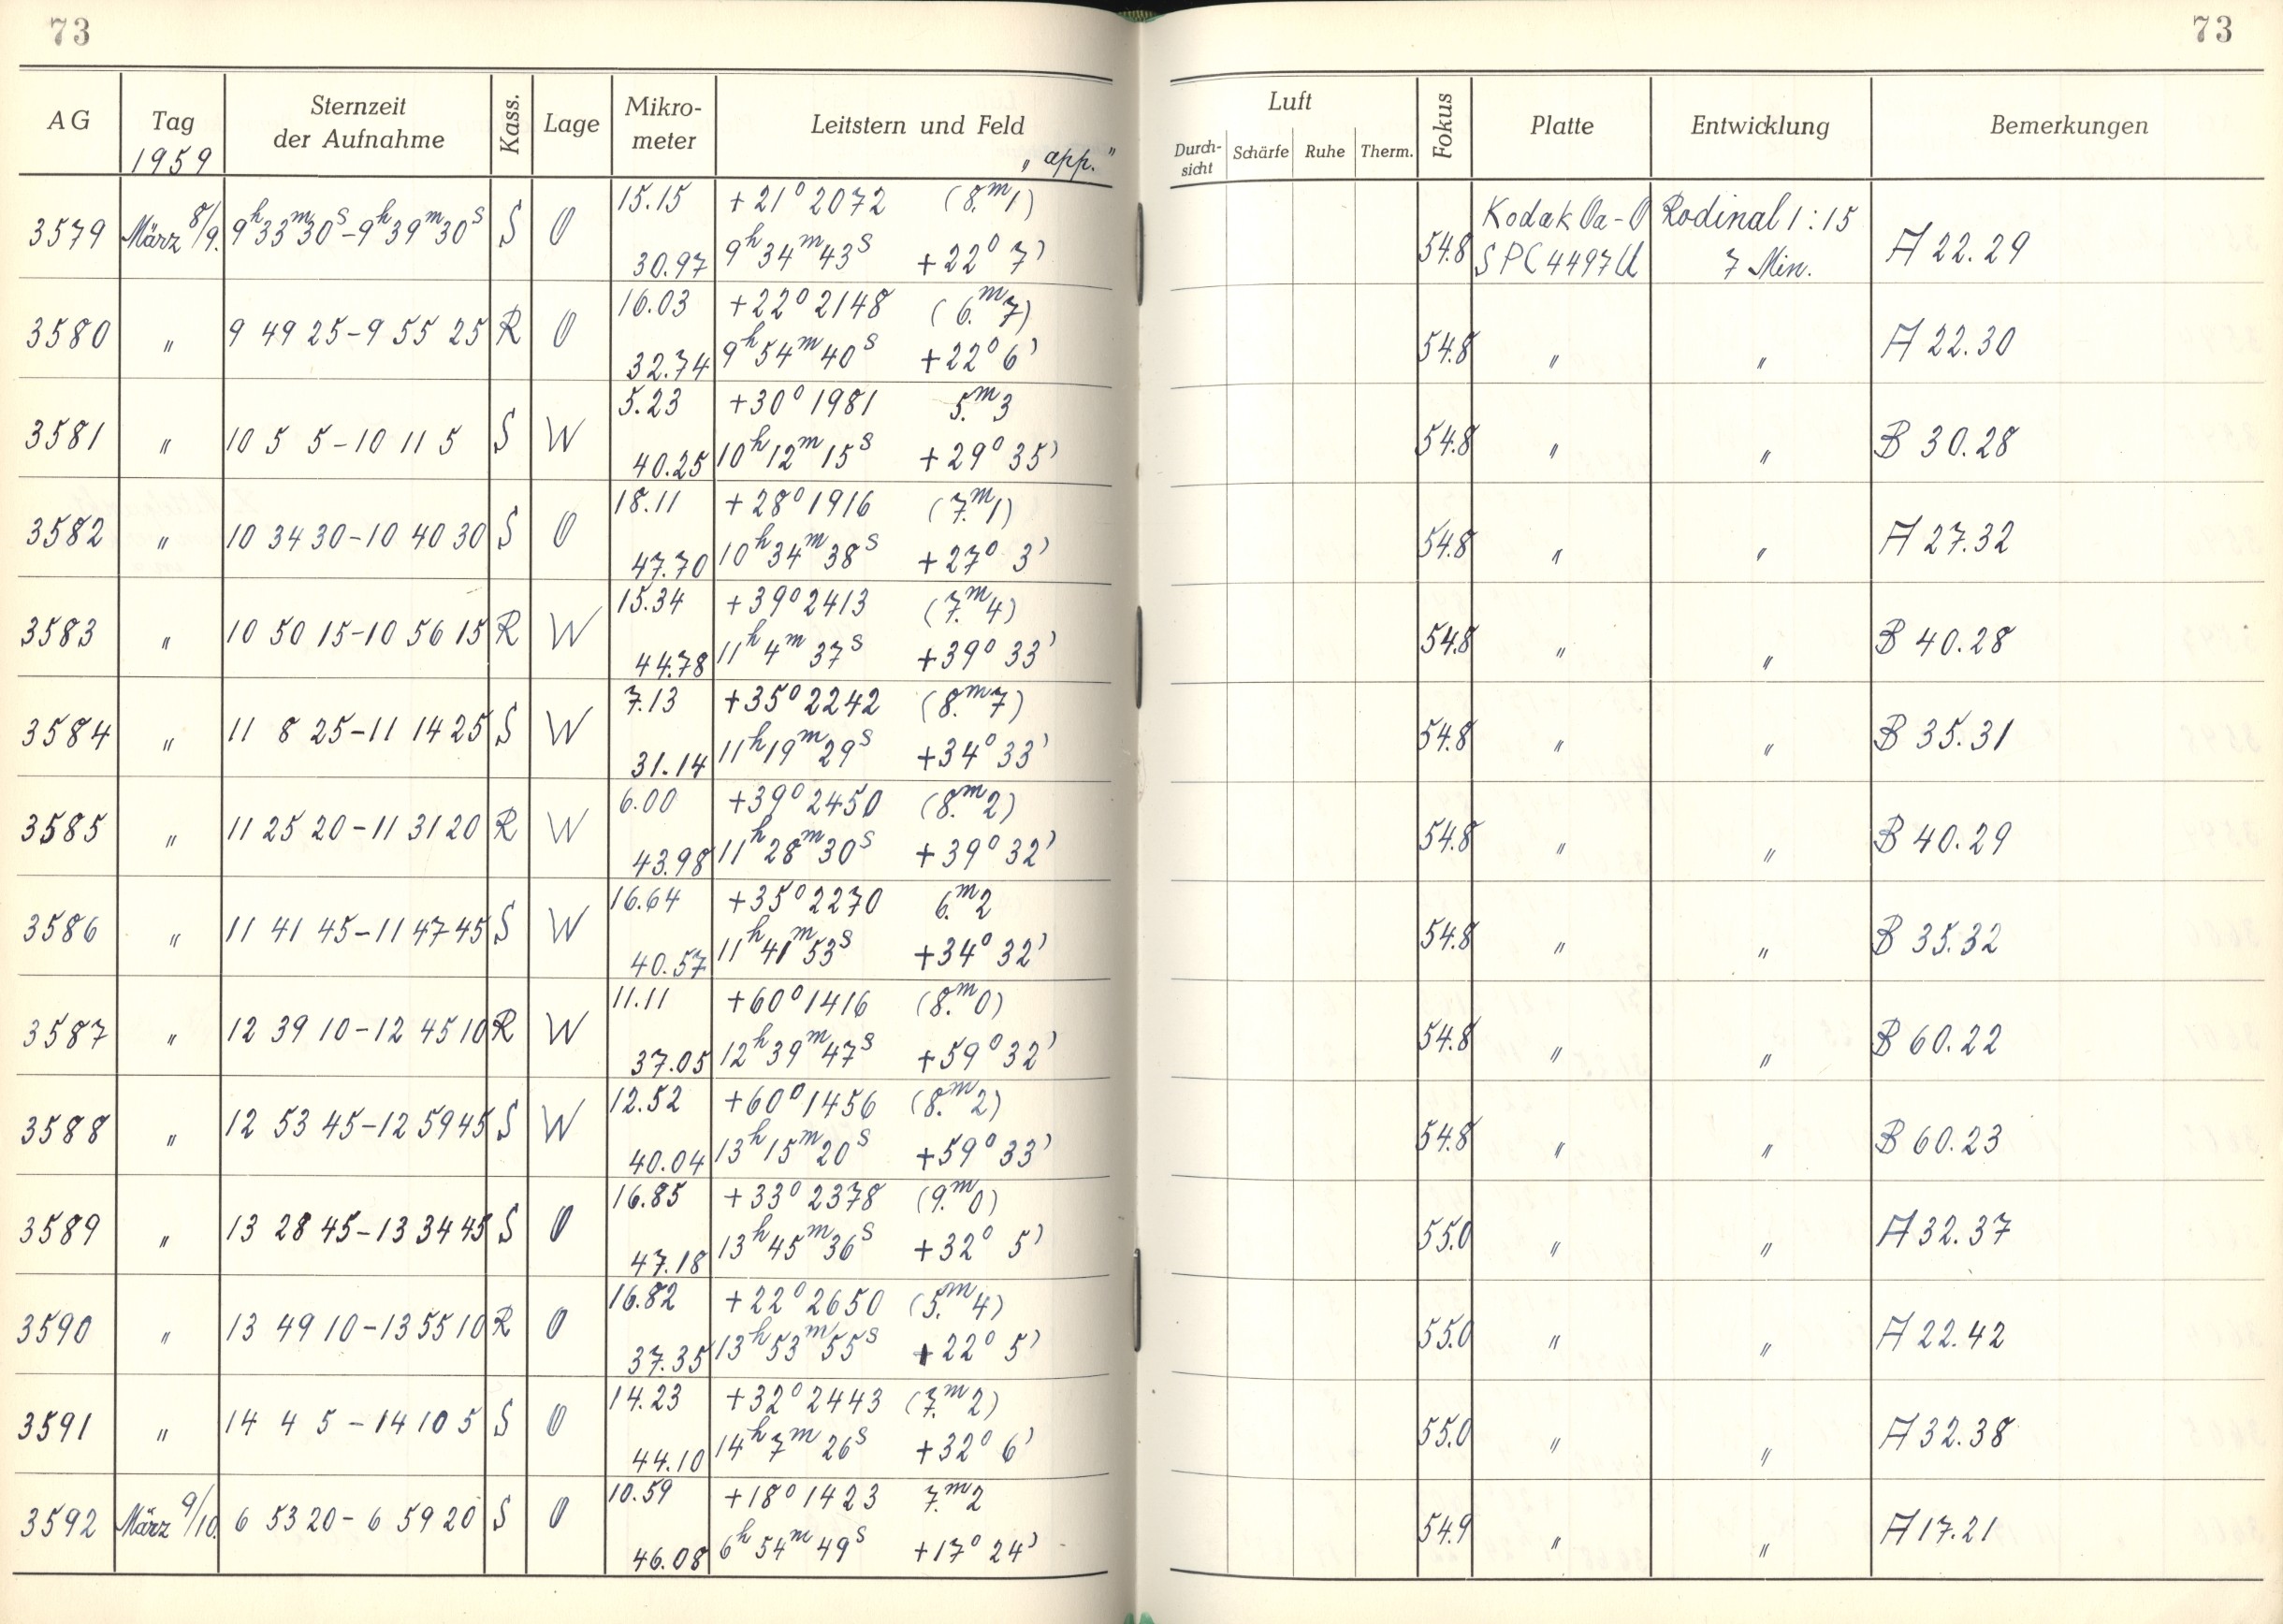 73
73
AG Tag 1959 Sternzeit der Aufnahme Kass. Lage Mikro-meter Leitstern und Feld „app.“
Luft
Durch-sicht Schärfe Ruhe Therm. Fokus Platte Entwicklung Bemerkungen
15.15 +21° 2072 (8.ᵐ1)
3579 März 8/9. 9ʰ33ᵐ30ˢ–9ʰ39ᵐ30ˢ S O
30.97 9ʰ34ᵐ43ˢ +22° 7'
54.8 Kodak Oa-O Rodinal 1:15 A 22.29
SPC4497U 7 Min.
16.03 +22° 2148 (6.ᵐ7)
3580 " 9 49 25–9 55 25 R O
32.74 9ʰ54ᵐ40ˢ +22° 6'
54.8 " " A 22.30
5.23 +30° 1981 5.ᵐ3
3581 " 10 5 5–10 11 5 S W
40.25 10ʰ12ᵐ15ˢ +29° 35'
54.8 " " B 30.28
18.11 +28° 1916 (7.ᵐ1)
3582 " 10 34 30–10 40 30 S O
47.70 10ʰ34ᵐ38ˢ +27° 3'
54.8 " " A 27.32
15.34 +39° 2413 (7.ᵐ4)
3583 " 10 50 15–10 56 15 R W
44.78 11ʰ4ᵐ37ˢ +39° 33'
54.8 " " B 40.28
7.13 +35° 2242 (8.ᵐ7)
3584 " 11 8 25–11 14 25 S W
31.14 11ʰ19ᵐ29ˢ +34° 33'
54.8 " " B 35.31
6.00 +39° 2450 (8.ᵐ2)
3585 " 11 25 20–11 31 20 R W
43.98 11ʰ28ᵐ30ˢ +39° 32'
54.8 " " B 40.29
16.64 +35° 2270 6.ᵐ2
3586 " 11 41 45–11 47 45 S W
40.57 11ʰ41ᵐ53ˢ +34° 32'
54.8 " " B 35.32
11.11 +60° 1416 (8.ᵐ0)
3587 " 12 39 10–12 45 10 R W
37.05 12ʰ39ᵐ47ˢ +59° 32'
54.8 " " B 60.22
12.52 +60° 1456 (8.ᵐ2)
3588 " 12 53 45–12 59 45 S W
40.04 13ʰ15ᵐ20ˢ +59° 33'
54.8 " " B 60.23
16.85 +33° 2378 (9.ᵐ0)
3589 " 13 28 45–13 34 45 S O
47.18 13ʰ45ᵐ36ˢ +32° 5'
55.0 " " A 32.37
16.82 +22° 2650 (5.ᵐ4)
3590 " 13 49 10–13 55 10 R O
37.35 13ʰ53ᵐ55ˢ +22° 5'
55.0 " " A 22.42
14.23 +32° 2443 (7.ᵐ2)
3591 " 14 4 5–14 10 5 S O
44.10 14ʰ7ᵐ26ˢ +32° 6'
55.0 " " A 32.38
10.59 +18° 1423 7.ᵐ2
3592 März 9/10. 6 53 20–6 59 20 S O
46.08 6ʰ54ᵐ49ˢ +17° 24'
54.9 " " A 17.21